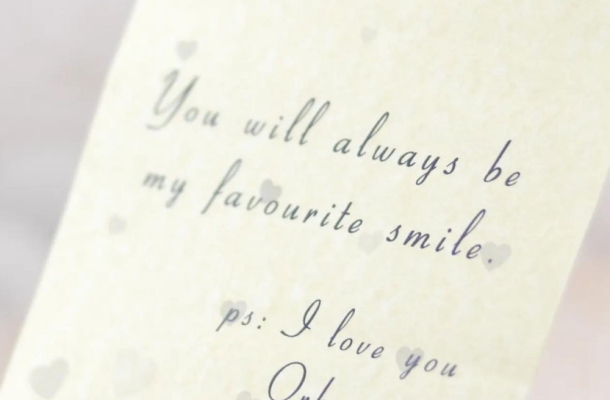 You will always be
my favourite smile.
ps: I love you